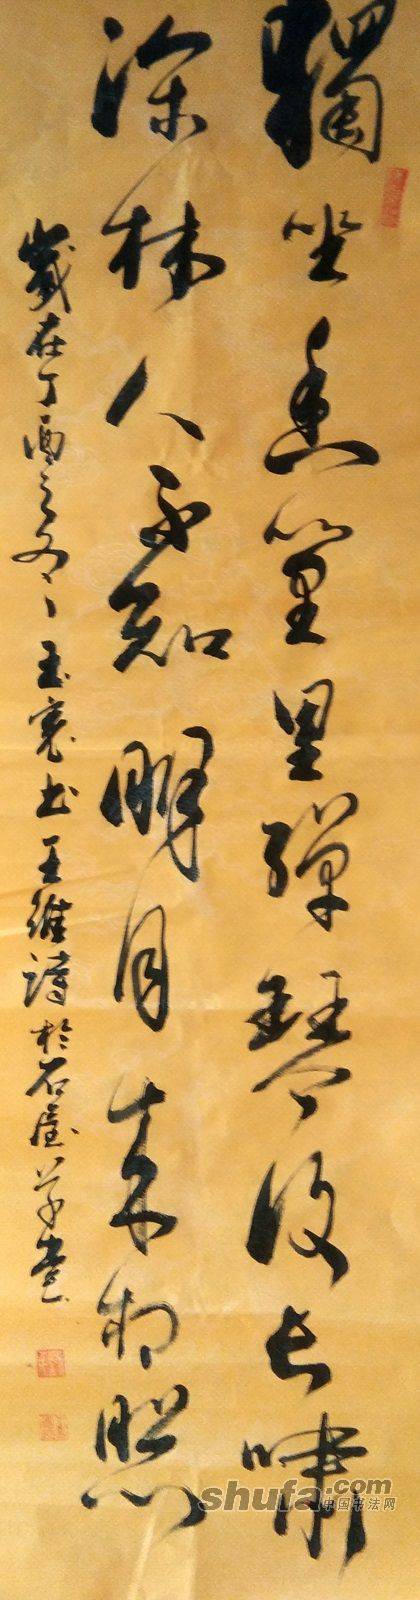 獨坐幽篁里彈琴復長嘯
深林人不知明月来相照
歲在丁酉之冬玉寬书王維詩於石屋草堂
shufa.com
中国书法网